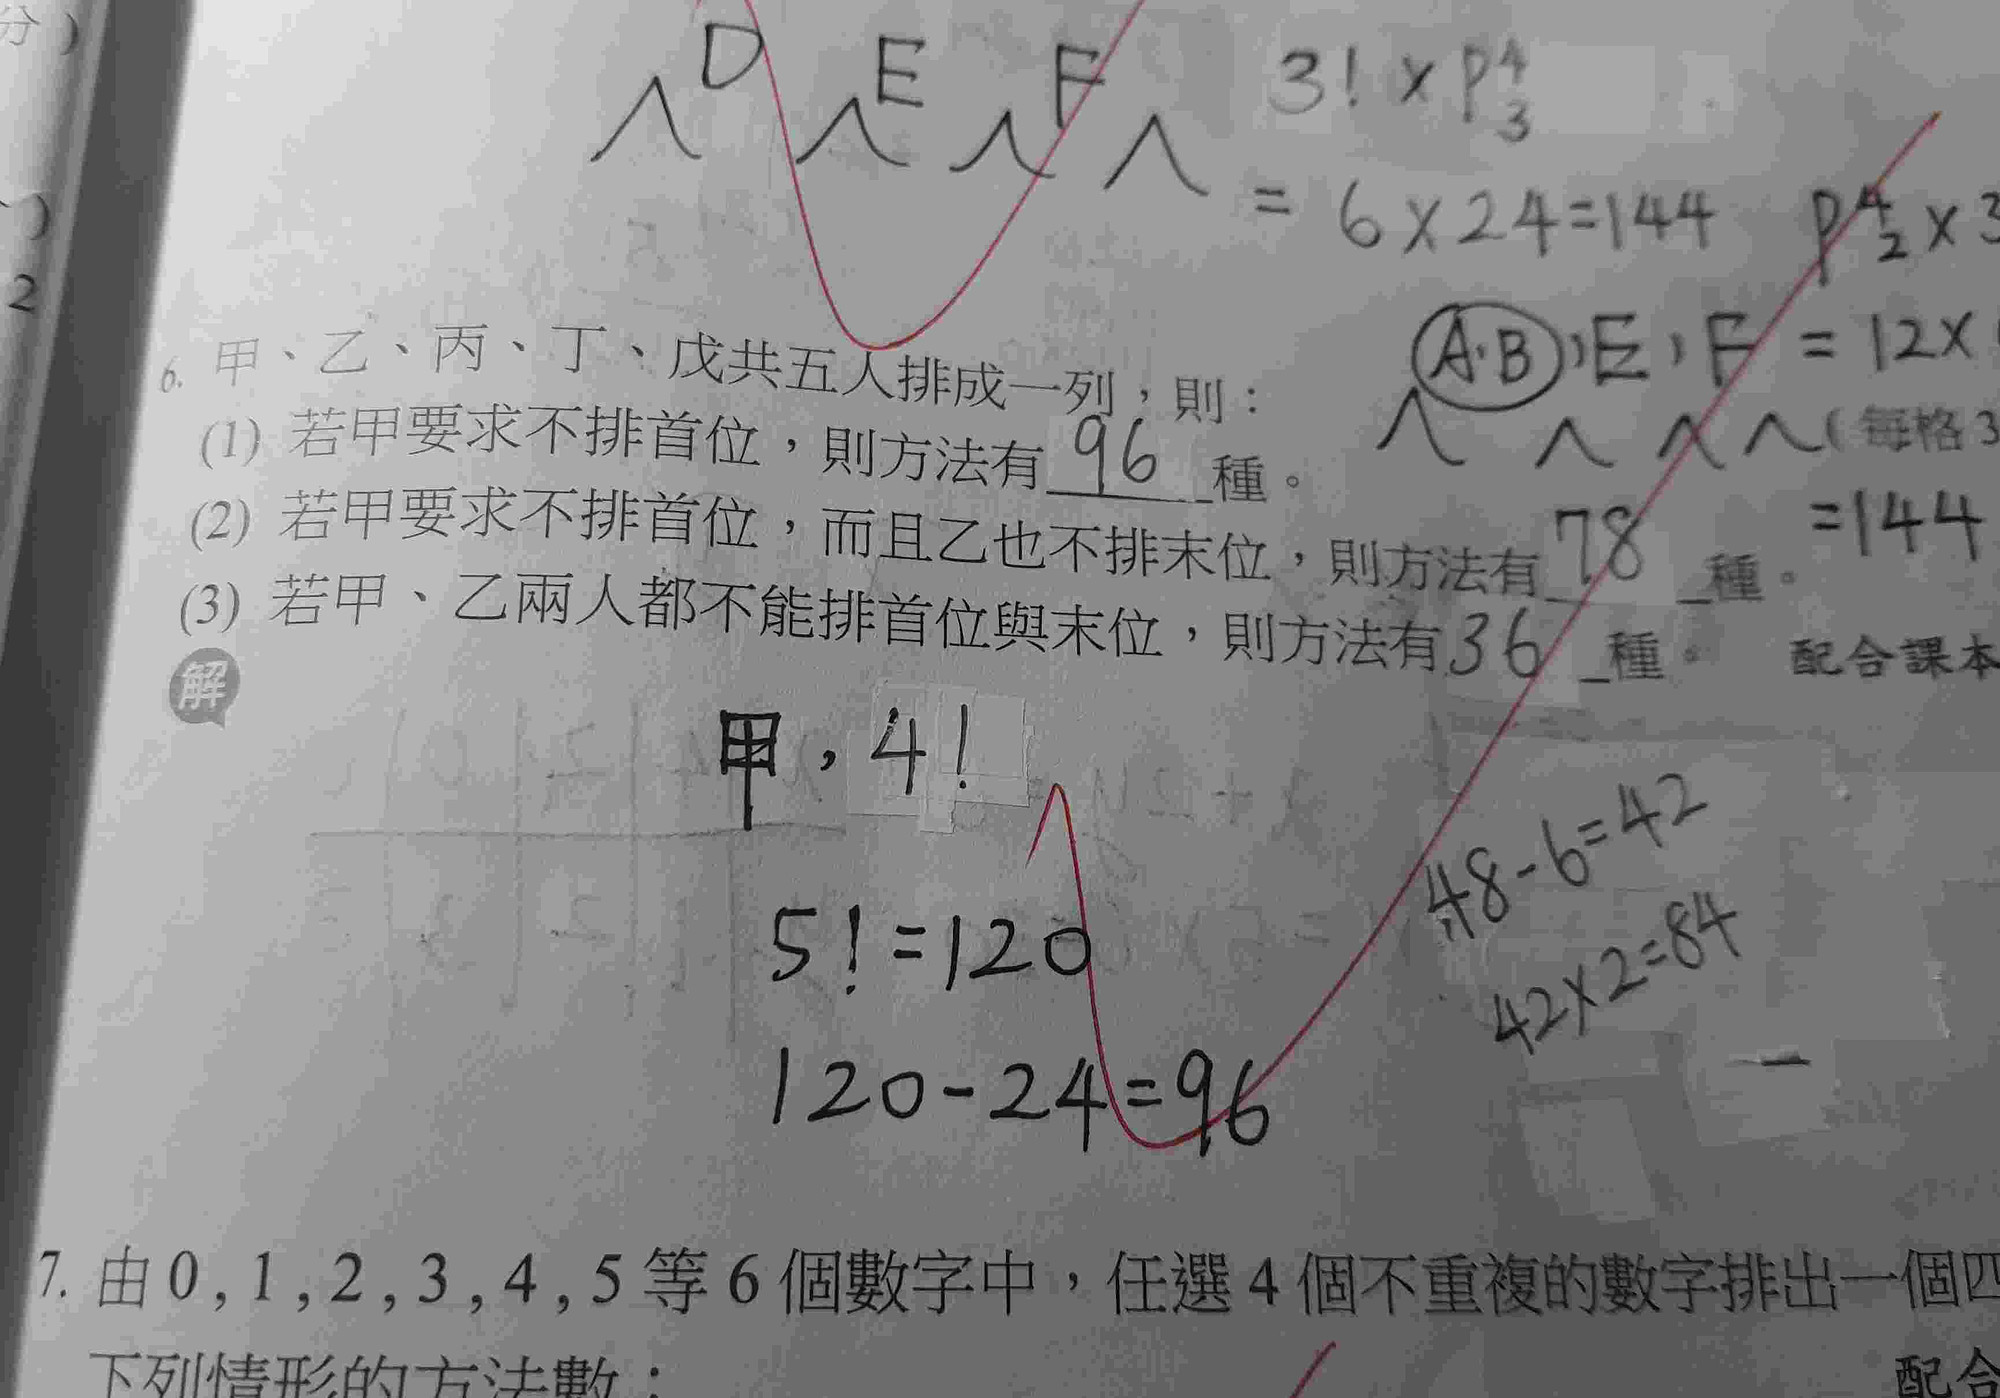 分)
D E F 3! × P⁴₃
= 6 × 24 = 144 P⁴₂ × 3
2
6. 甲、乙、丙、丁、戊共五人排成一列，則：
(A·B), E, F = 12 ×
(每格3
(1) 若甲要求不排首位，則方法有 96 種。
(2) 若甲要求不排首位，而且乙也不排末位，則方法有 78 種。
= 144
(3) 若甲、乙兩人都不能排首位與末位，則方法有 36 種。
配合課本
解
甲, 4!
48 - 6 = 42
5! = 120
42 × 2 = 84
120 - 24 = 96
7. 由 0 , 1 , 2 , 3 , 4 , 5 等 6 個數字中，任選 4 個不重複的數字排出一個四
下列情形的方法數：
配合